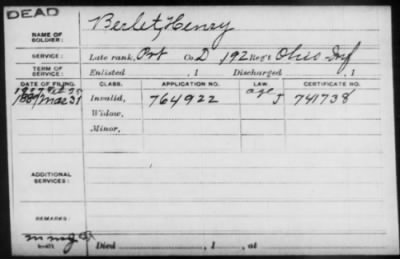 DEAD
NAME OF SOLDIER: Berlet, Henry
SERVICE: Late rank, Pvt Co. D, 192 Reg't Ohio Inf
TERM OF SERVICE: Enlisted , 1 Discharged , 1
DATE OF FILING. CLASS. APPLICATION NO. LAW. CERTIFICATE NO.
1927
Mar 31 Invalid, 764922 age J 741738
Widow,
Minor,
ADDITIONAL SERVICES:
REMARKS:
Died , 1 , at